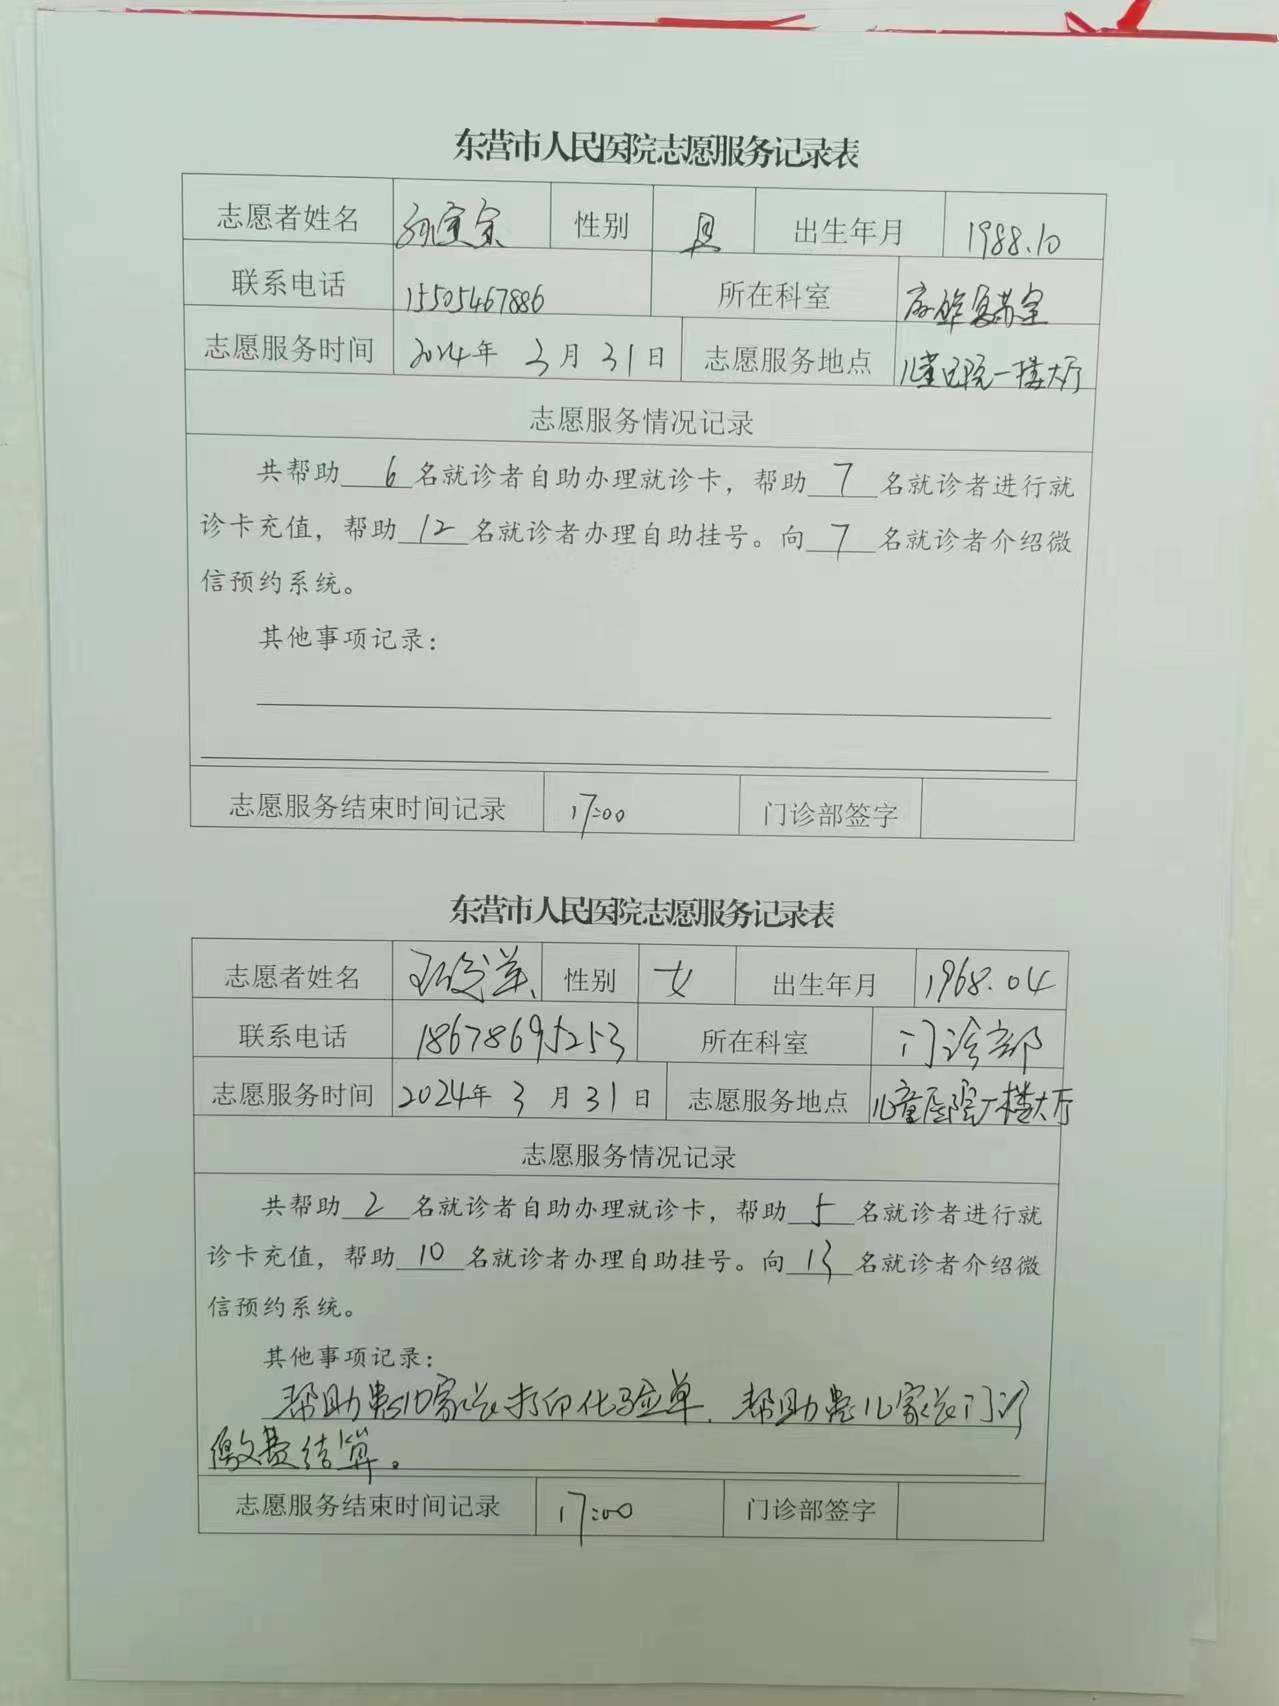 东营市人民医院志愿服务记录表
志愿者姓名 性别 男 出生年月 1988.10
联系电话 15505467886 所在科室 麻醉复苏室
志愿服务时间 2024年 3月 31日 志愿服务地点 儿童医院一楼大厅
志愿服务情况记录
共帮助 6 名就诊者自助办理就诊卡，帮助 7 名就诊者进行就
诊卡充值，帮助 12 名就诊者办理自助挂号。向 7 名就诊者介绍微
信预约系统。
其他事项记录：
志愿服务结束时间记录 17:00 门诊部签字
东营市人民医院志愿服务记录表
志愿者姓名 性别 女 出生年月 1968.04
联系电话 18678695253 所在科室 门诊部
志愿服务时间 2024年 3 月 31日 志愿服务地点 儿童医院一楼大厅
志愿服务情况记录
共帮助 2 名就诊者自助办理就诊卡，帮助 5 名就诊者进行就
诊卡充值，帮助 10 名就诊者办理自助挂号。向 13 名就诊者介绍微
信预约系统。
其他事项记录：
帮助患儿家长打印化验单、帮助患儿家长门诊
缴费结算。
志愿服务结束时间记录 17:00 门诊部签字